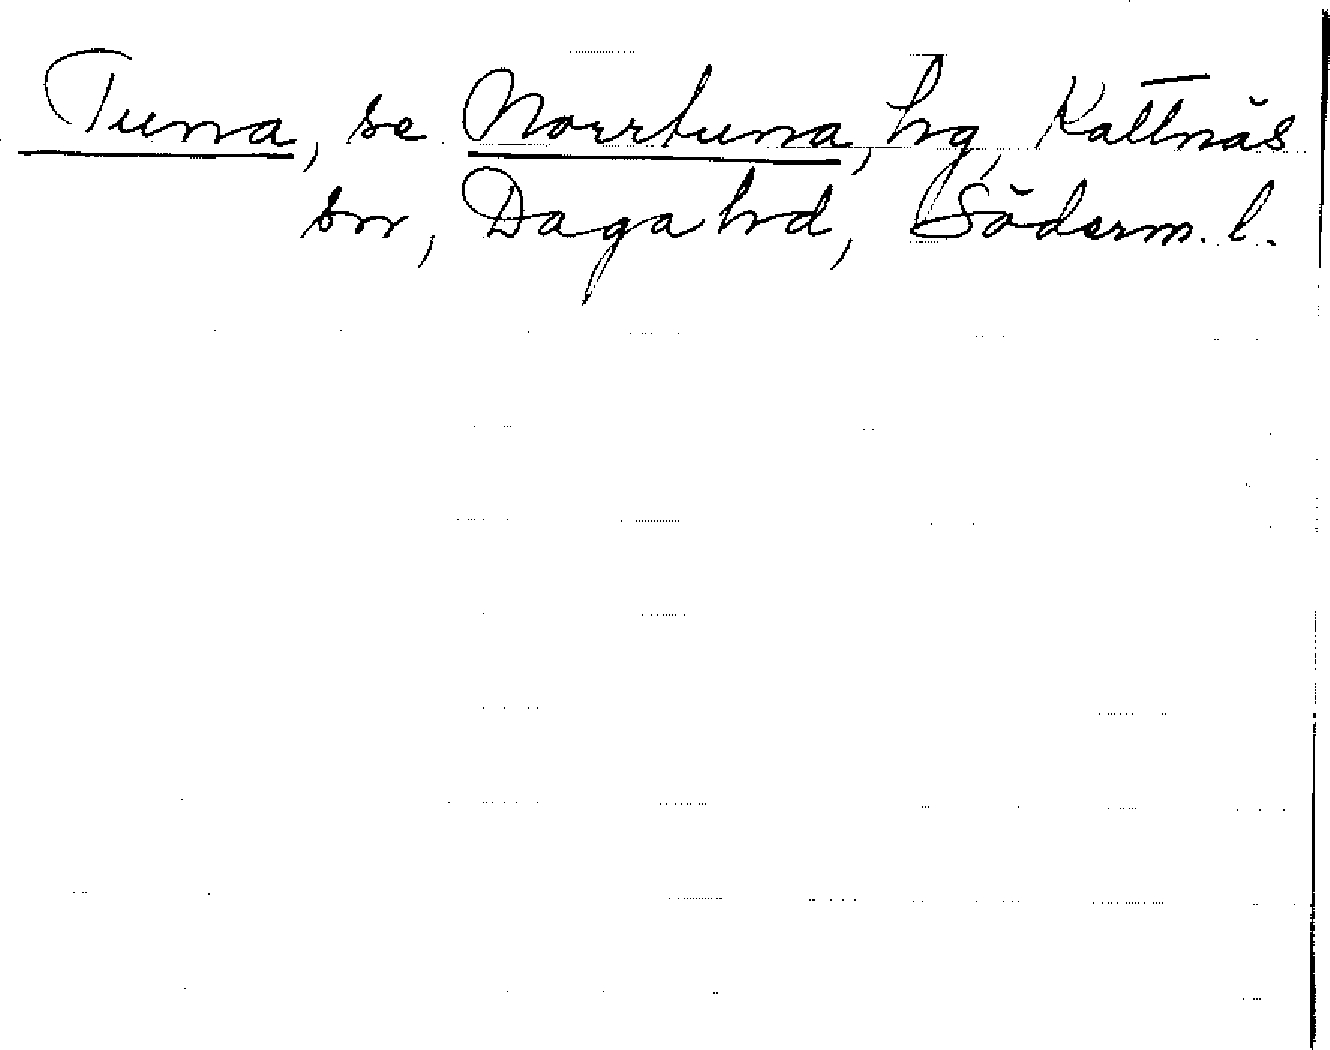 Tuna, se Norrtuna, hg, Kattnäs
sn, Daga hd, Söderm. l.